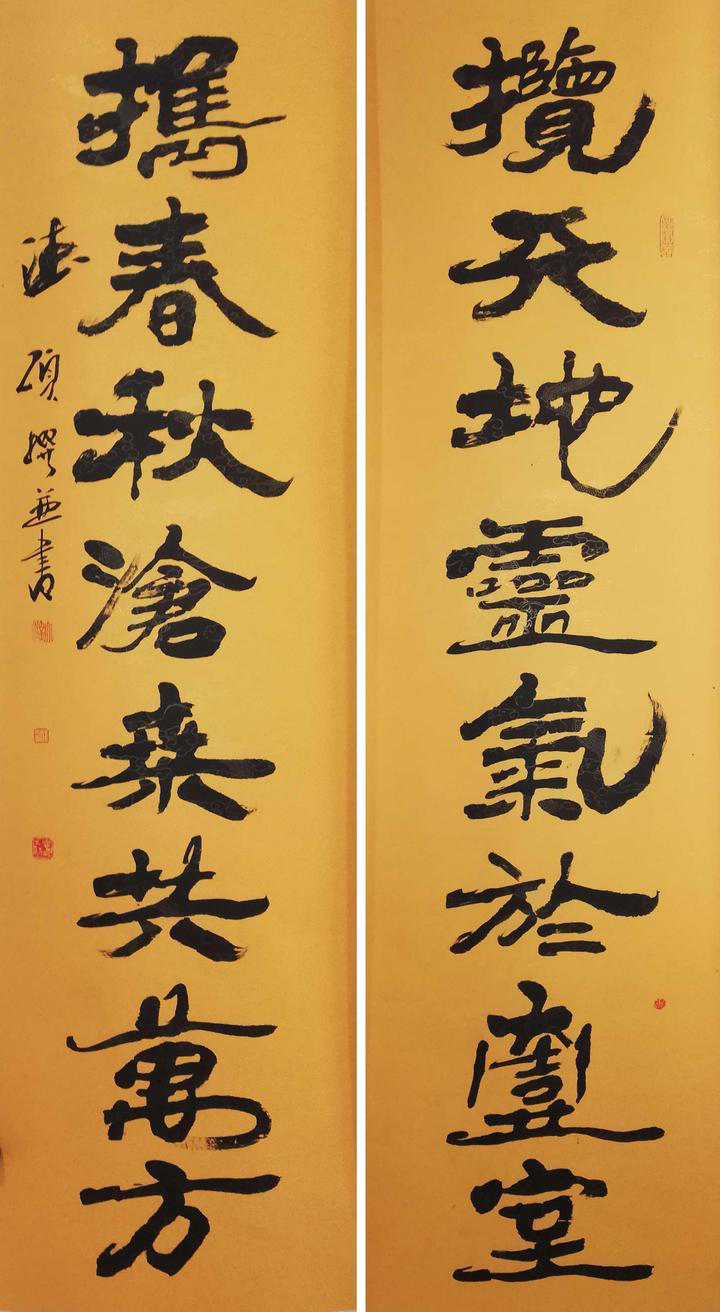 攬天地靈氣於壹室
攜春秋滄桑共萬方
德碩撰並書